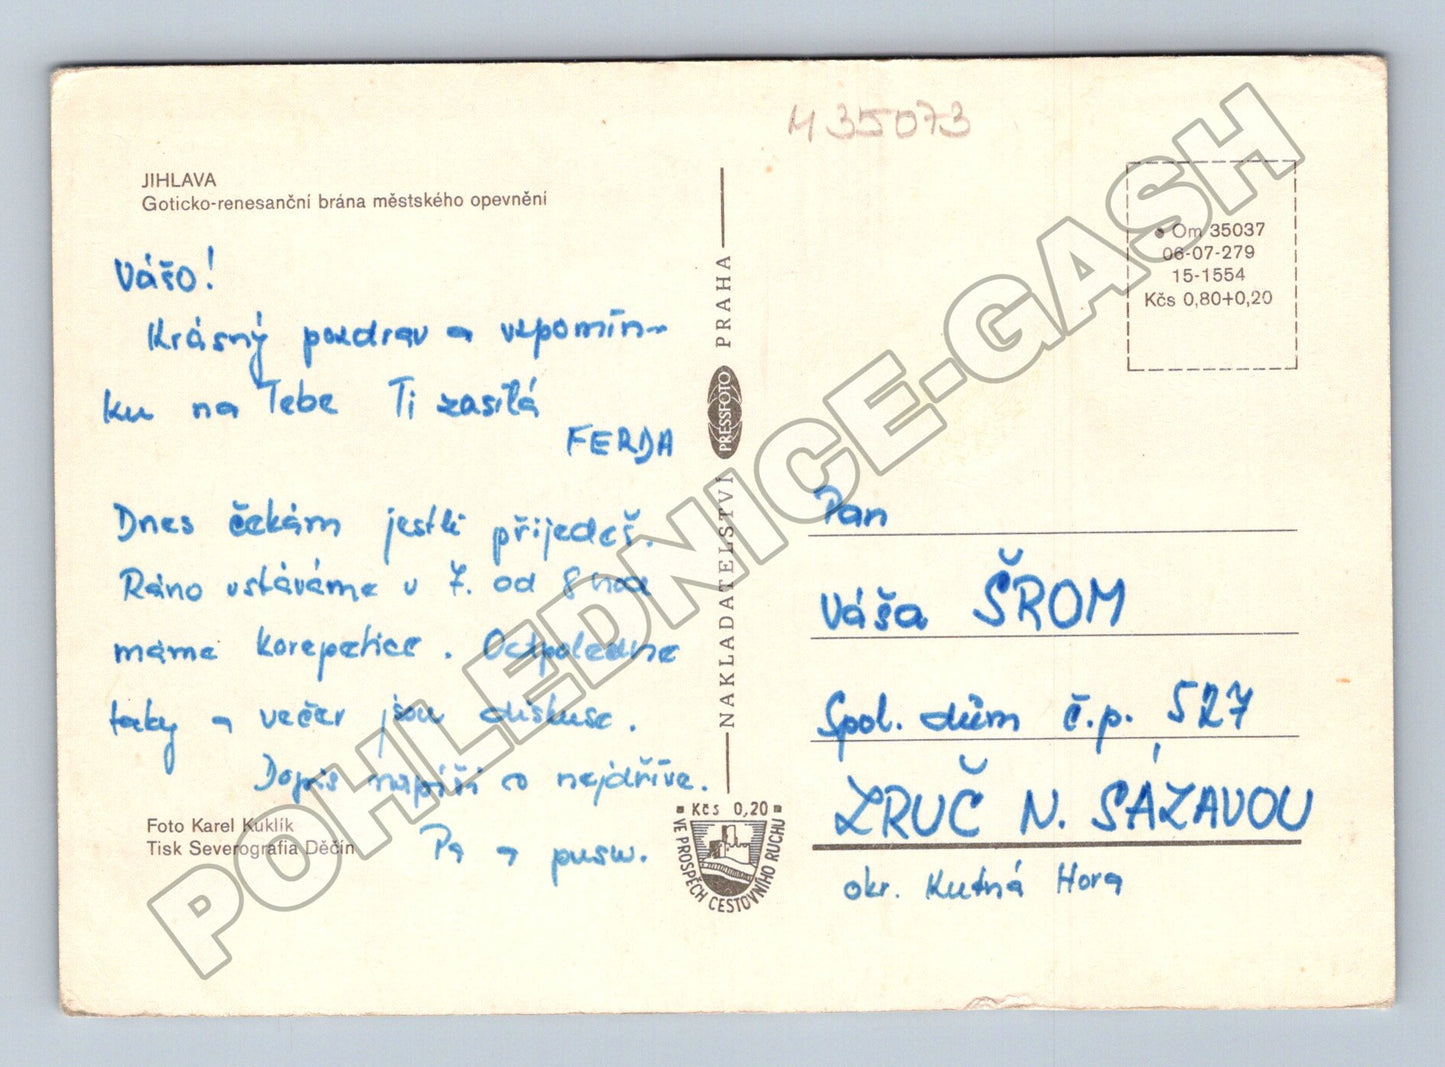 H 35073
JIHLAVA
Goticko-renesanční brána městského opevnění
Vášo!
Krásný pozdrav a vzpomín-
ku na Tebe Ti zasílá
FERDA
Dnes čekám jestli přijedeš.
Ráno vstáváme v 7. od 8 hod
máme korepetice. Odpoledne
taky a večer jsou diskuse.
Dopis napíši co nejdříve.
Pa a pusu.
Foto Karel Kuklík
Tisk Severografia Děčín
NAKLADATELSTVÍ PRESSFOTO PRAHA
Kčs 0,20
VE PROSPĚCH CESTOVNÍHO RUCHU
Om 35037
06-07-279
15-1554
Kčs 0,80+0,20
Pan
Váša ŠROM
Spol. dům č.p. 527
ZRUČ N. SÁZAVOU
okr. Kutná Hora
POHLEDNICE-GASH